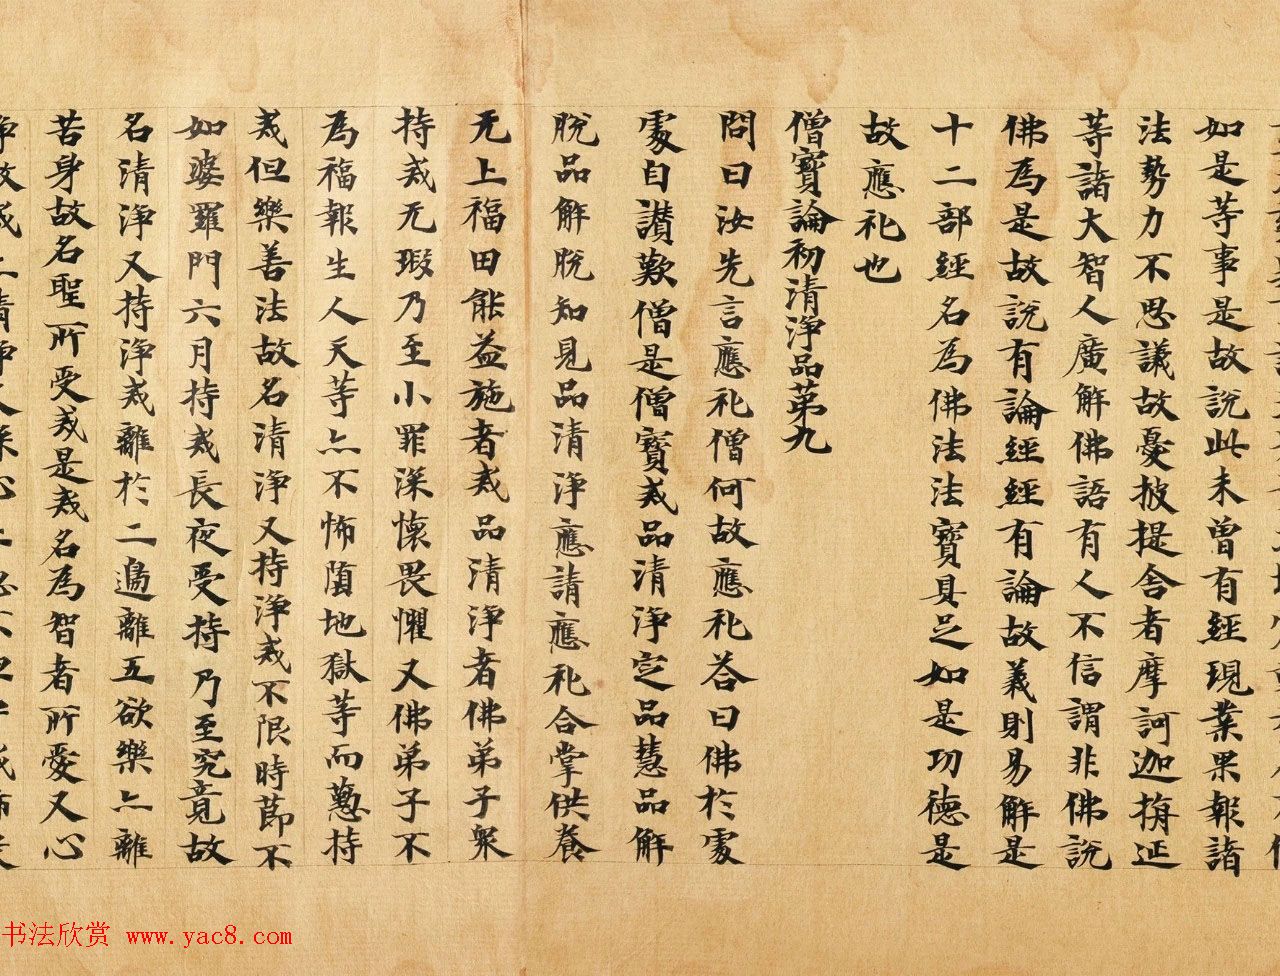 如是等事是故說此未曾有經現業果報諸
法勢力不思議故憂披提舍者摩訶迦旃延
等諸大智人廣解佛語有人不信謂非佛說
佛為是故說有論經經有論故義則易解是
十二部經名為佛法法寶具足如是功德是
故應礼也
僧寶論初清淨品第九
問曰汝先言應礼僧何故應礼答曰佛於處
處自讃歎僧是僧寶戒品清淨定品慧品解
脫品解脫知見品清淨應請應礼合掌供養
无上福田能益施者戒品清淨者佛弟子衆
持戒无瑕乃至小罪深懷畏懼又佛弟子不
為福報生人天等亦不怖墮地獄等而懃持
戒但樂善法故名清淨又持淨戒不限時節不
如婆羅門六月持戒長夜受持乃至究竟故
名清淨又持淨戒離於二邊離五欲樂亦離
苦身故名聖所受戒是戒名為智者所愛又心
书法欣赏 www.yac8.com